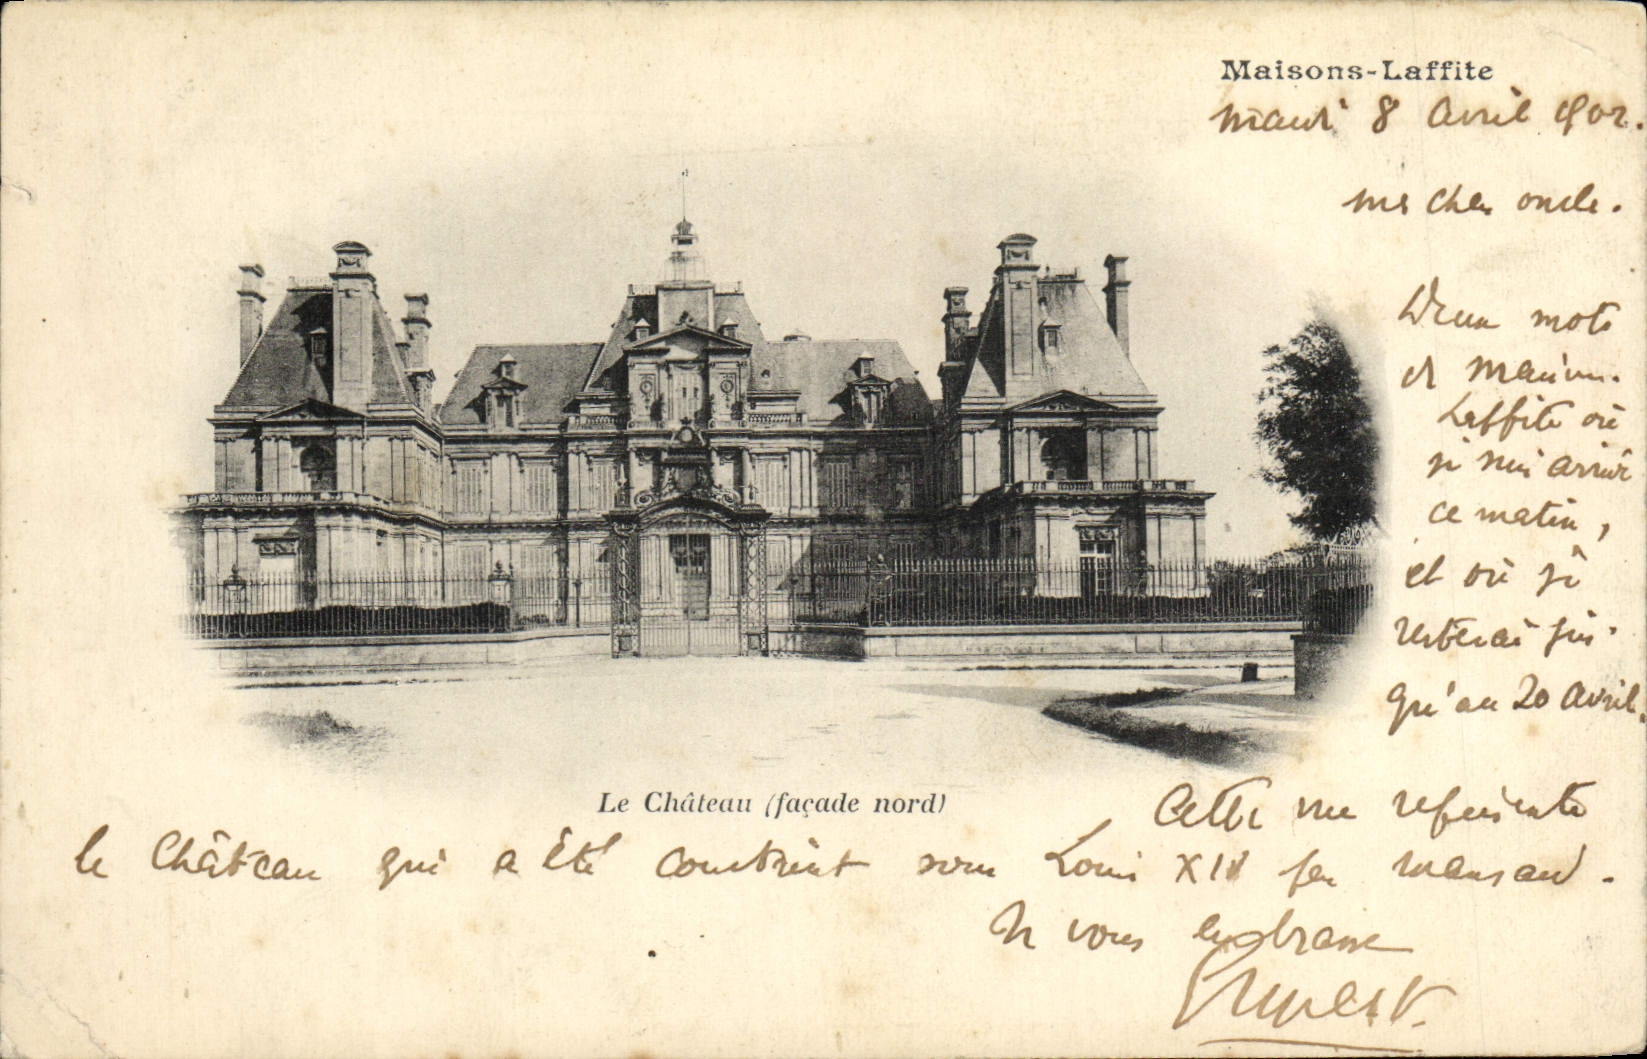 Maisons-Laffite
Mardi 8 Avril 1902.
Mon cher oncle.
Deux mots
de Maisons-
Laffite où
je suis arrivé
ce matin,
et où je
resterai jus-
qu'au 20 Avril.
Le Château (façade nord)
Cette vue représente
le Château qui a été construit sous Louis XIV par Mansard.
Je vous embrasse
Ernest.